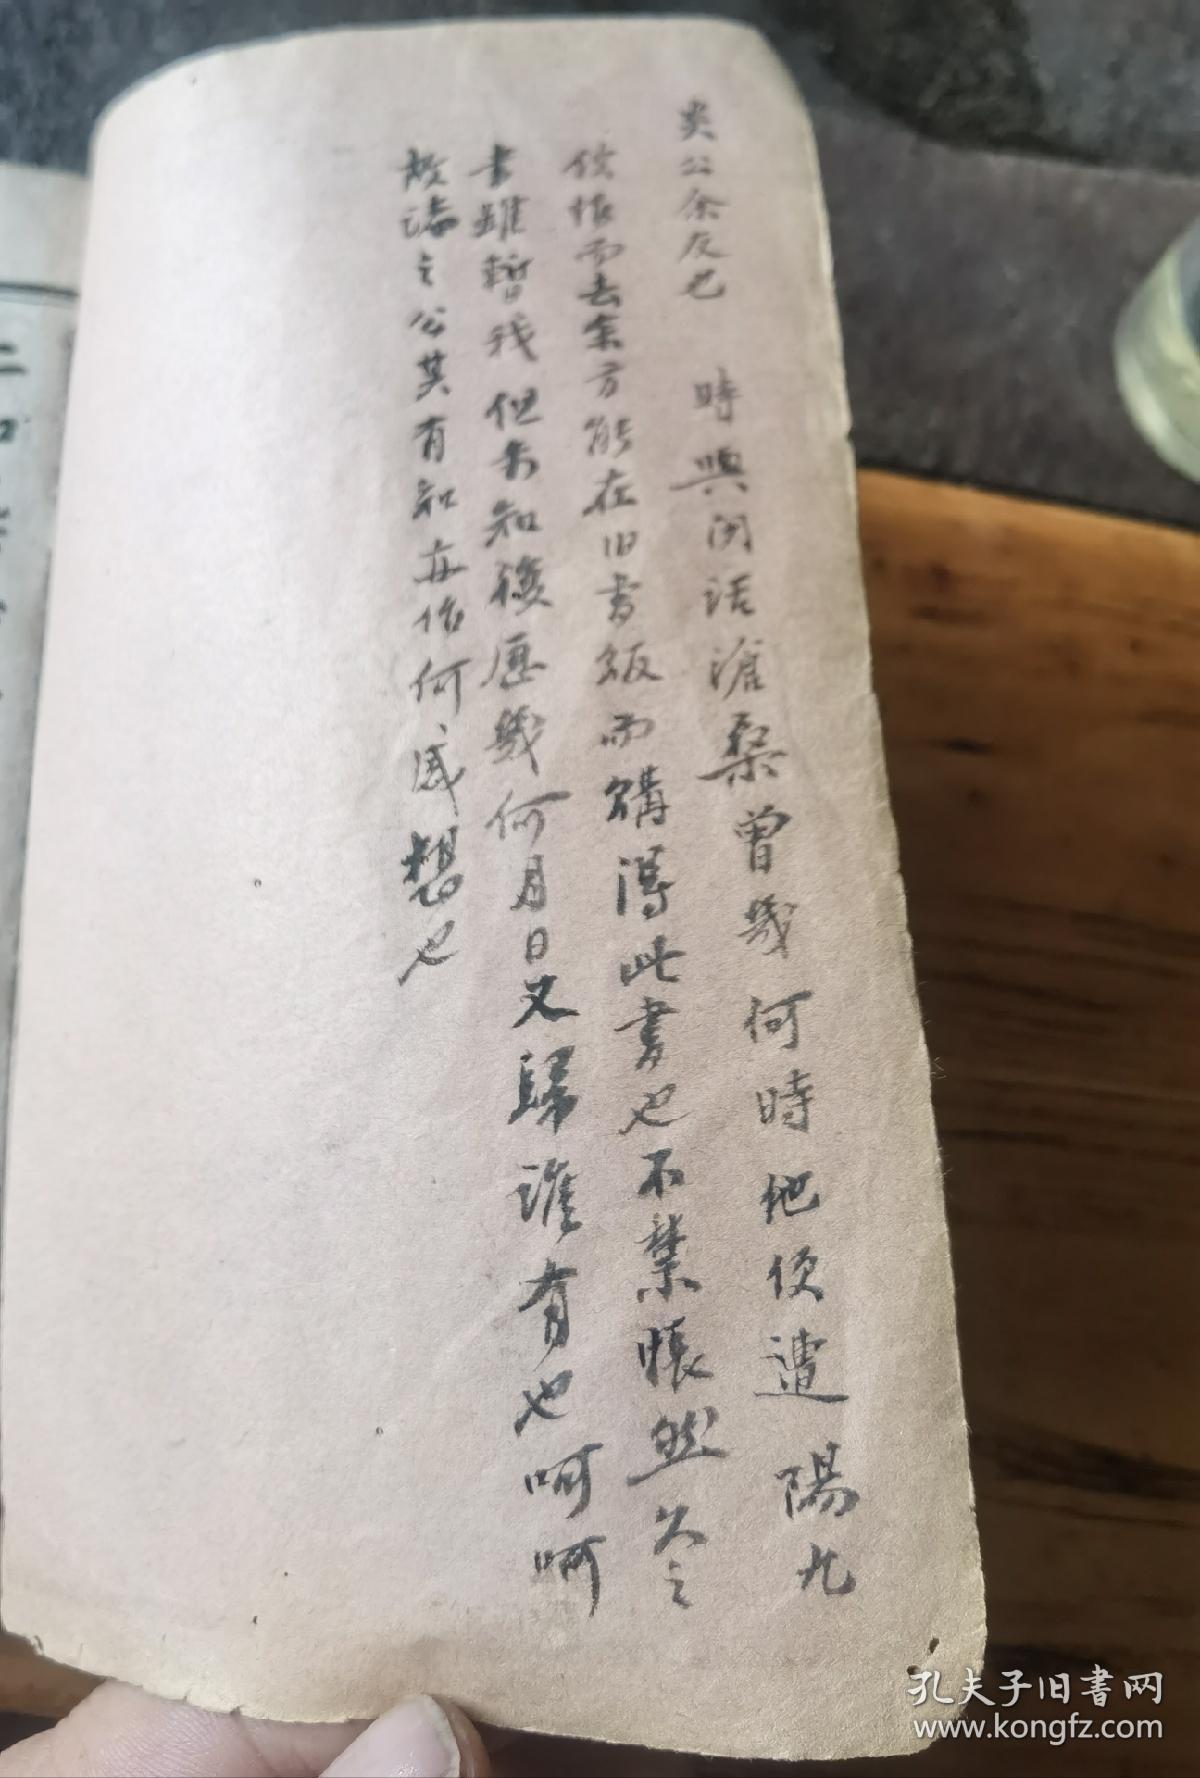 公余友也 時與閑話滄桑曾幾何時他便遭陽九
悵而去余方能在旧書販而購得此書也不禁悵然久之
書雖暫我但未知後歷幾何月日又歸誰有也呵呵
故誌之公其有知亦作何感想也
二
孔夫子旧书网
www.kongfz.com